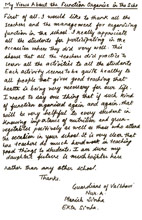 My Views About the Function Organise in the Edu
First of all I would like to thank all the
teachers and the management for organising
function in the school I really appreciate
all the students for participating in the
occasion where they did very well. This
shows that all the teachers did positive to
cover all the activities and all the students
Each activity seems to be quite healthy to
all people that gives good teaching that
health is being very necessary for our life
I want to say one thing that if such kind
of function organised again and again that
will be very helpful to every student in
knowing importance of nutrition and green-
vegetables positively as well as those who attend
the occasion in your school it is very clear that
the teachers do much hardwork in teaching
good things to students I am sure my
daughter future is much brighter here
rather than any other school
Thanks.
Guardians of Vaibhavi
Nur-A
Manish Sinha
Ekta Sinha